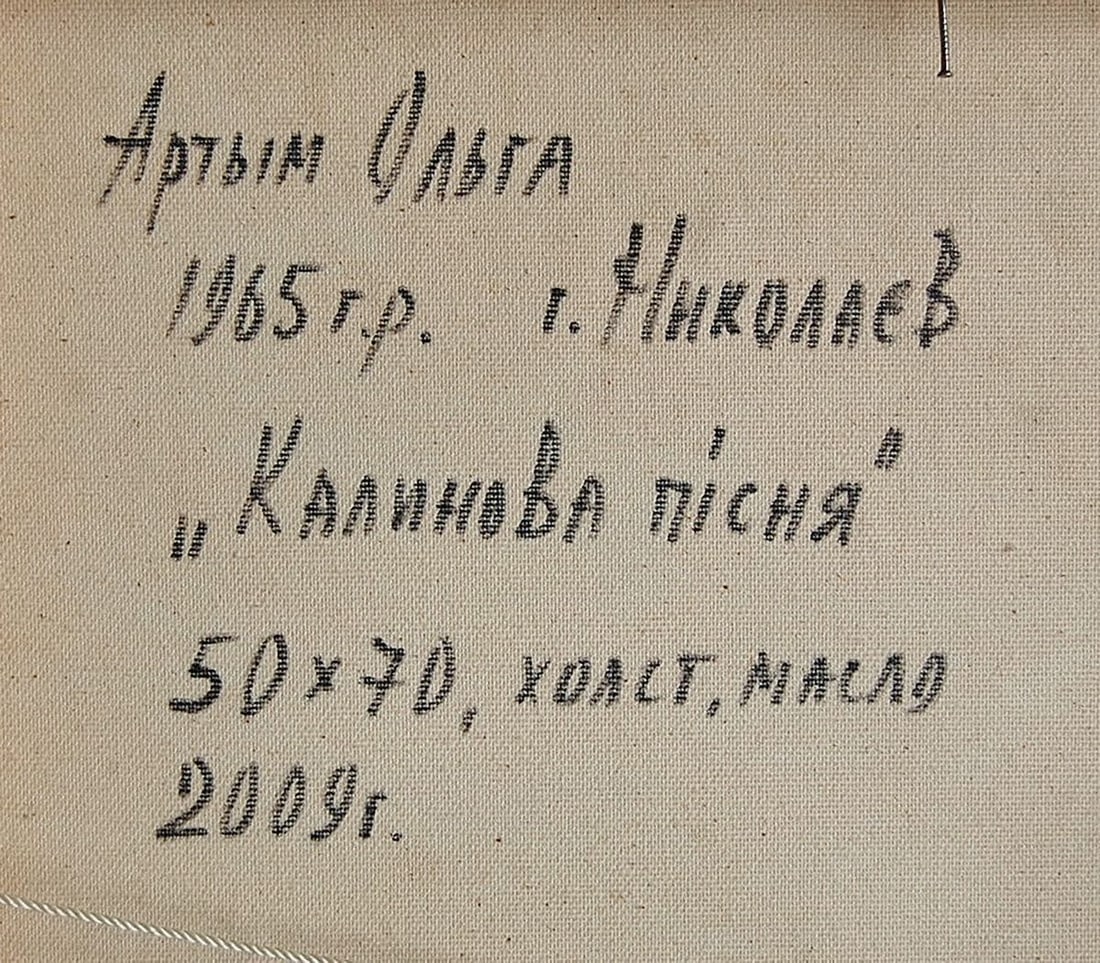 Артым Ольга
1965 г.р. г. Николаев
„Калинова пісня"
50 х 70, холст, масло
2009г.